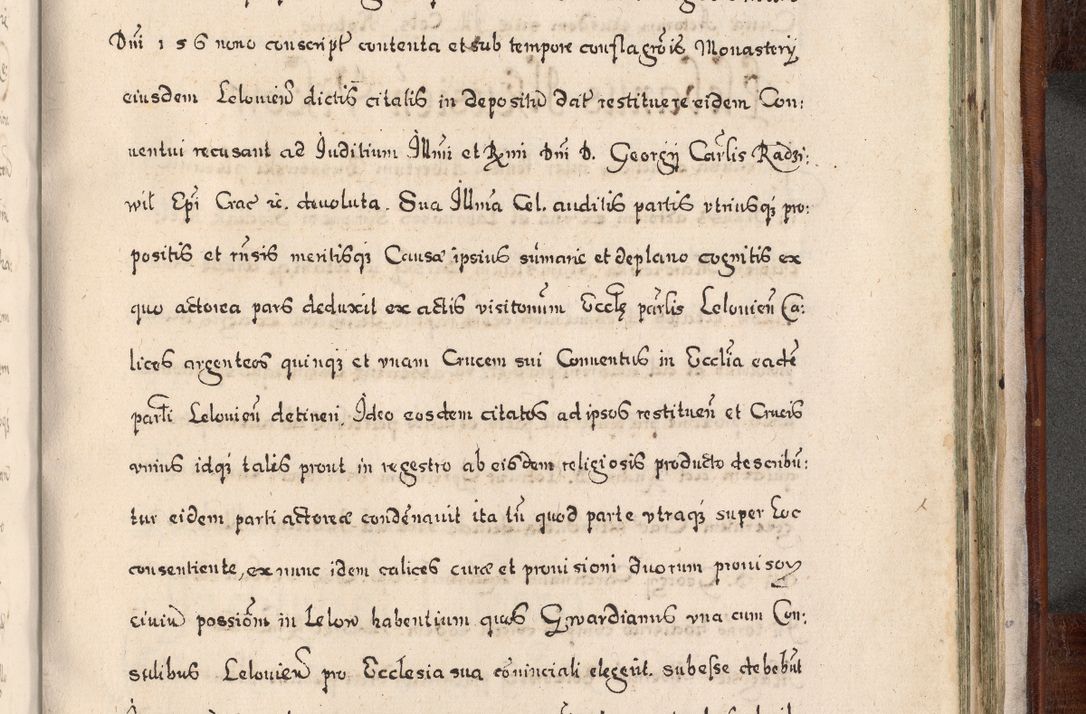 Dñi 1 5 6 nono conscript contenta et sub tempore conflagrõis Monastery
eiusdem Leloviens dictis citatis in depositũ dat restituere eidem Con:
uentui recusant ad Juditium Illmi et Rmi Dni D. Georgij Carlis Radzi:
wił Epi Crac rc. devoluta. Sua Illma Cel. auditis partis vtriusqz pro:
positis et rñsis meritisqz Causæ ipsius sũmarie et deplano cognitis ex
quo actorea pars deduxit ex actis visitonum Ecclę parlis Lelouieñ Ca:
lices argenteos quinqz et vnam Crucem sui Conuentus in Ecclia eadẽ
parli Lelouieñ detineri. Ideo eosdem citatos ad ipsos restitueñ et Crucis
vnius idqz talis prout in regestro ab eisdem religiosis producto describũ:
tur eidem parti actoreæ condẽnauit ita tñ quod parte vtraqz super hoc
consentiente, ex nunc idem calices curæ et prouisioni duorum prouisoꝝ
ciuiũ possiõm in Lelow habentium quos Gwardianus vna cum Con:
sulibus Lelouien pro Ecclesia sua cõuinciali elegerit. subesse debebũt